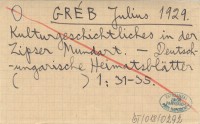 O GRÉB Julius 1929.
Kulturgeschichtliches in der
Zipser Mundart. — Deutsch-
ungarische Heimatsblätter
( ) 1: 31-35.